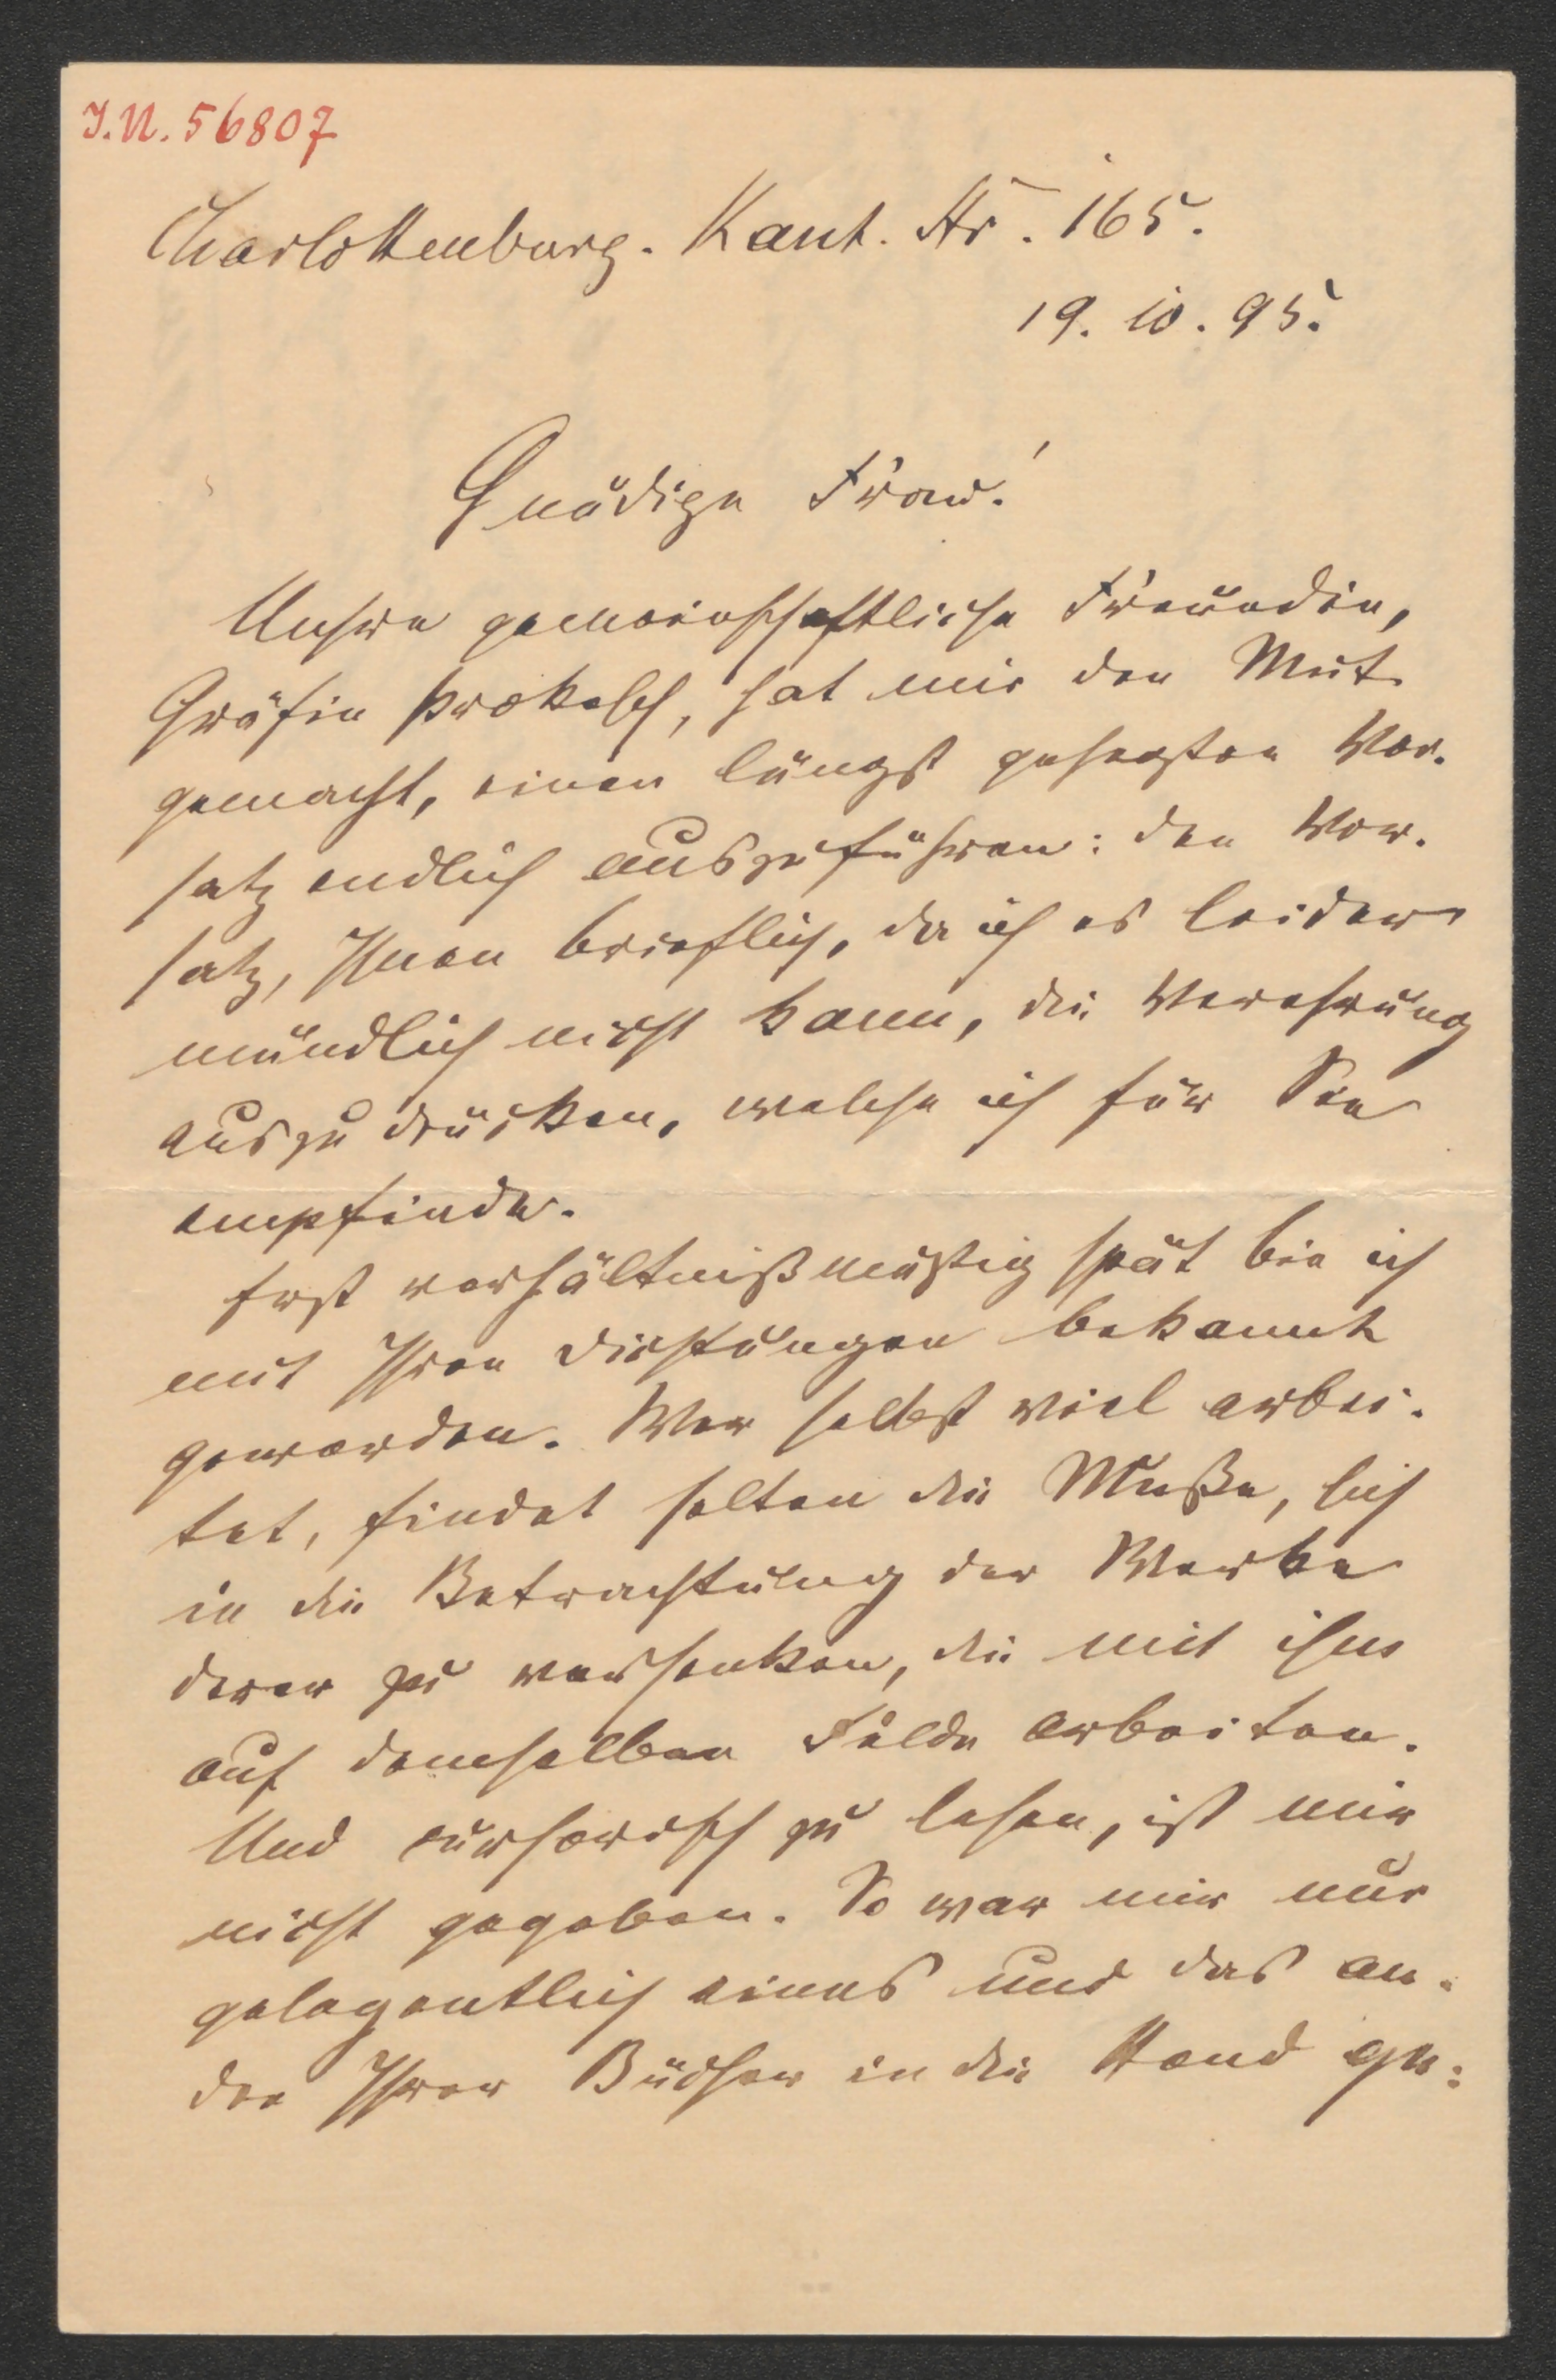 J.N. 56807
Charlottenburg. Kant. Str. 165.
19. 10. 95.
Gnädige Frau!
Unsre gemeinschaftliche Freundin,
Gräfin Prokesch, hat mir den Mut
gemacht, einen längst gehegten Vor-
satz endlich auszuführen: den Vor-
satz, Ihnen brieflich, da ich es leider
mündlich nicht kann, die Verehrung
auszudrücken, welche ich für Sie
empfinde.
Erst verhältnißmäßig spät bin ich
mit Ihren Dichtungen bekannt
geworden. Wer selbst viel arbei-
tet, findet selten die Muße, sich
in die Betrachtung der Werke
derer zu versenken, die mit ihm
auf demselben Felde arbeiten.
Und cursorisch zu lesen, ist mir
nicht gegeben. So war mir nur
gelegentlich eines und das an-
dre Ihrer Bücher in die Hand ge-